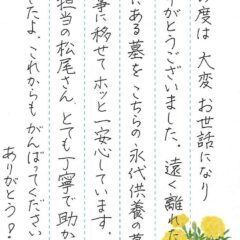 の度は 大変 お世話になり
がとうございました。遠く離れた
にある墓をこちらの永代供養の墓
事に移せてホッと一安心しています。
担当の松尾さん、とても丁寧で助か
たよ。これからもがんばってください
ありがとう